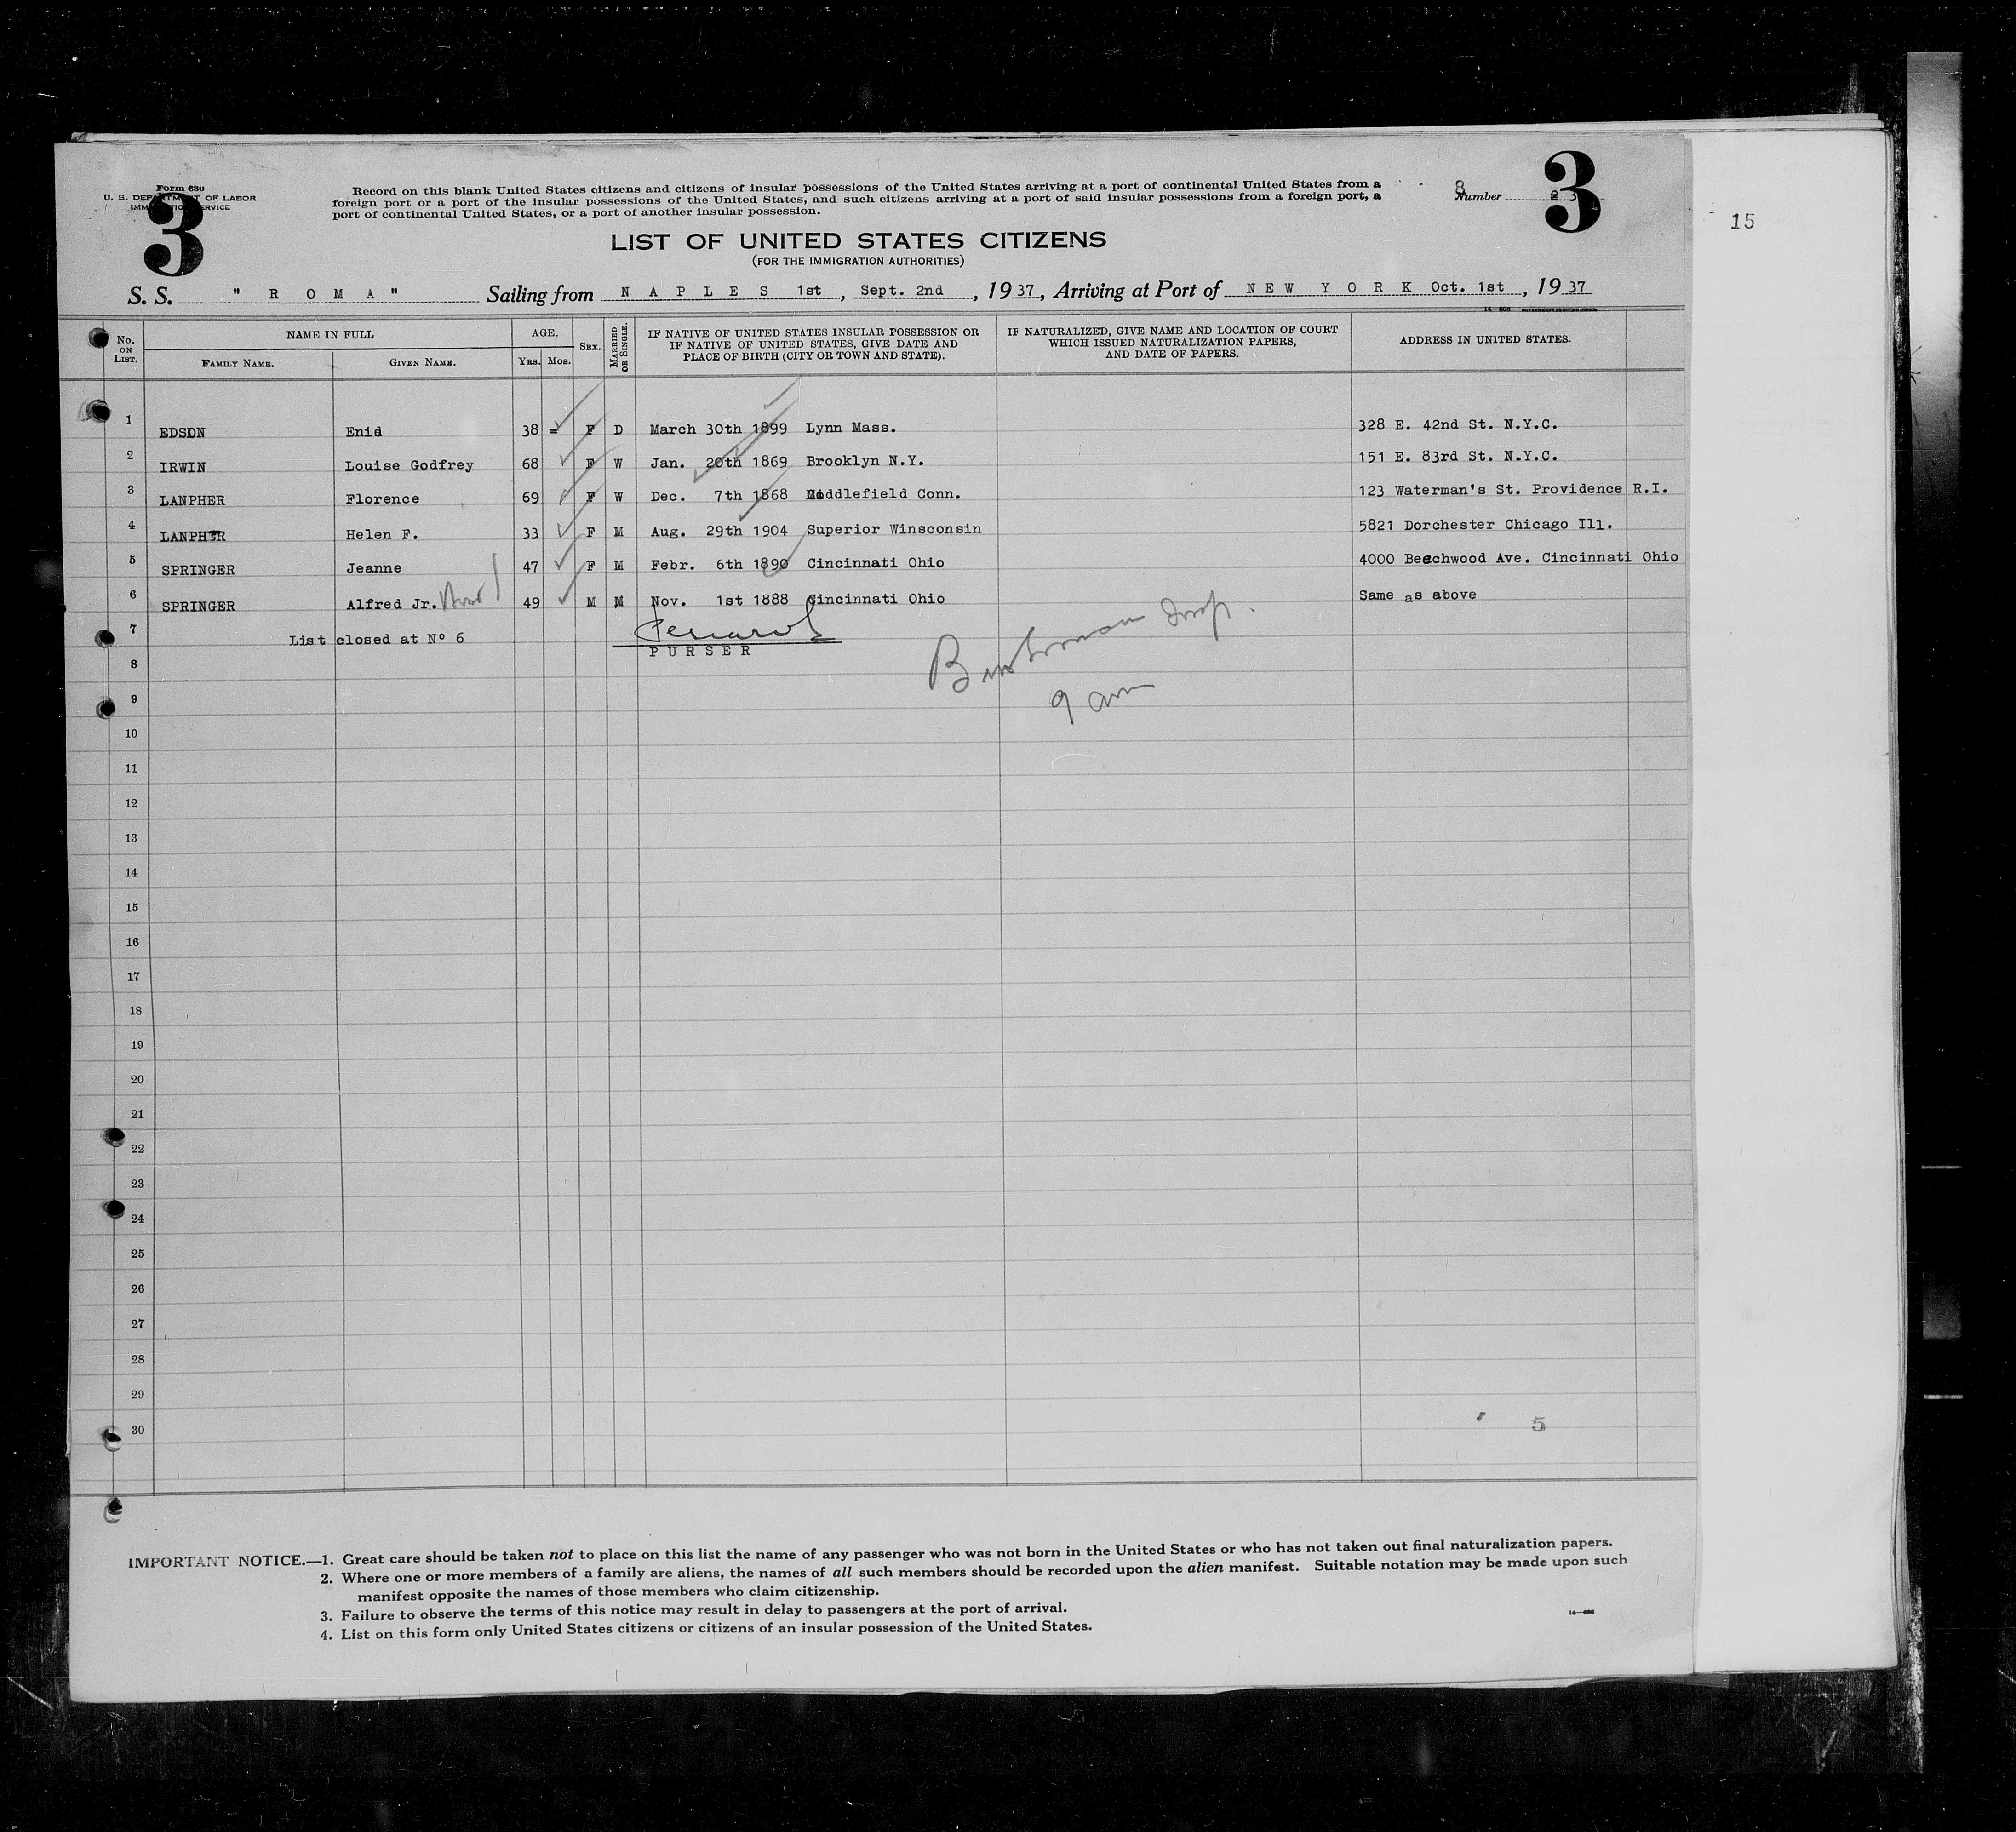 Form 630
U. S. DEPARTMENT OF LABOR
IMMIGRATION SERVICE
3
Record on this blank United States citizens and citizens of insular possessions of the United States arriving at a port of continental United States from a
foreign port or a port of the insular possessions of the United States, and such citizens arriving at a port of said insular possessions from a foreign port, a
port of continental United States, or a port of another insular possession.
8
Number 23
3
15
LIST OF UNITED STATES CITIZENS
(FOR THE IMMIGRATION AUTHORITIES)
S. S. " R O M A " Sailing from N A P L E S 1st , Sept. 2nd , 1937, Arriving at Port of N E W Y O R K Oct. 1st , 1937
No. ON LIST. NAME IN FULL AGE. SEX. MARRIED OR SINGLE. IF NATIVE OF UNITED STATES INSULAR POSSESSION OR IF NATIVE OF UNITED STATES, GIVE DATE AND PLACE OF BIRTH (CITY OR TOWN AND STATE). IF NATURALIZED, GIVE NAME AND LOCATION OF COURT WHICH ISSUED NATURALIZATION PAPERS, AND DATE OF PAPERS. ADDRESS IN UNITED STATES.
FAMILY NAME. GIVEN NAME. YRS. MOS.
1 EDSON Enid 38 = F D March 30th 1899 Lynn Mass. 328 E. 42nd St. N.Y.C.
2 IRWIN Louise Godfrey 68 F W Jan. 20th 1869 Brooklyn N.Y. 151 E. 83rd St. N.Y.C.
3 LANPHER Florence 69 F W Dec. 7th 1868 Middlefield Conn. 123 Waterman's St. Providence R.I.
4 LANPHER Helen F. 33 F M Aug. 29th 1904 Superior Winsconsin 5821 Dorchester Chicago Ill.
5 SPRINGER Jeanne 47 F M Febr. 6th 1890 Cincinnati Ohio 4000 Beechwood Ave. Cincinnati Ohio
6 SPRINGER Alfred Jr. 49 M M Nov. 1st 1888 Cincinnati Ohio Same as above
7 List closed at Nº 6
PURSER
8
9 9 am
10
11
12
13
14
15
16
17
18
19
20
21
22
23
24
25
26
27
28
29
30 5
IMPORTANT NOTICE.—1. Great care should be taken not to place on this list the name of any passenger who was not born in the United States or who has not taken out final naturalization papers.
2. Where one or more members of a family are aliens, the names of all such members should be recorded upon the alien manifest. Suitable notation may be made upon such
manifest opposite the names of those members who claim citizenship.
3. Failure to observe the terms of this notice may result in delay to passengers at the port of arrival.
4. List on this form only United States citizens or citizens of an insular possession of the United States.